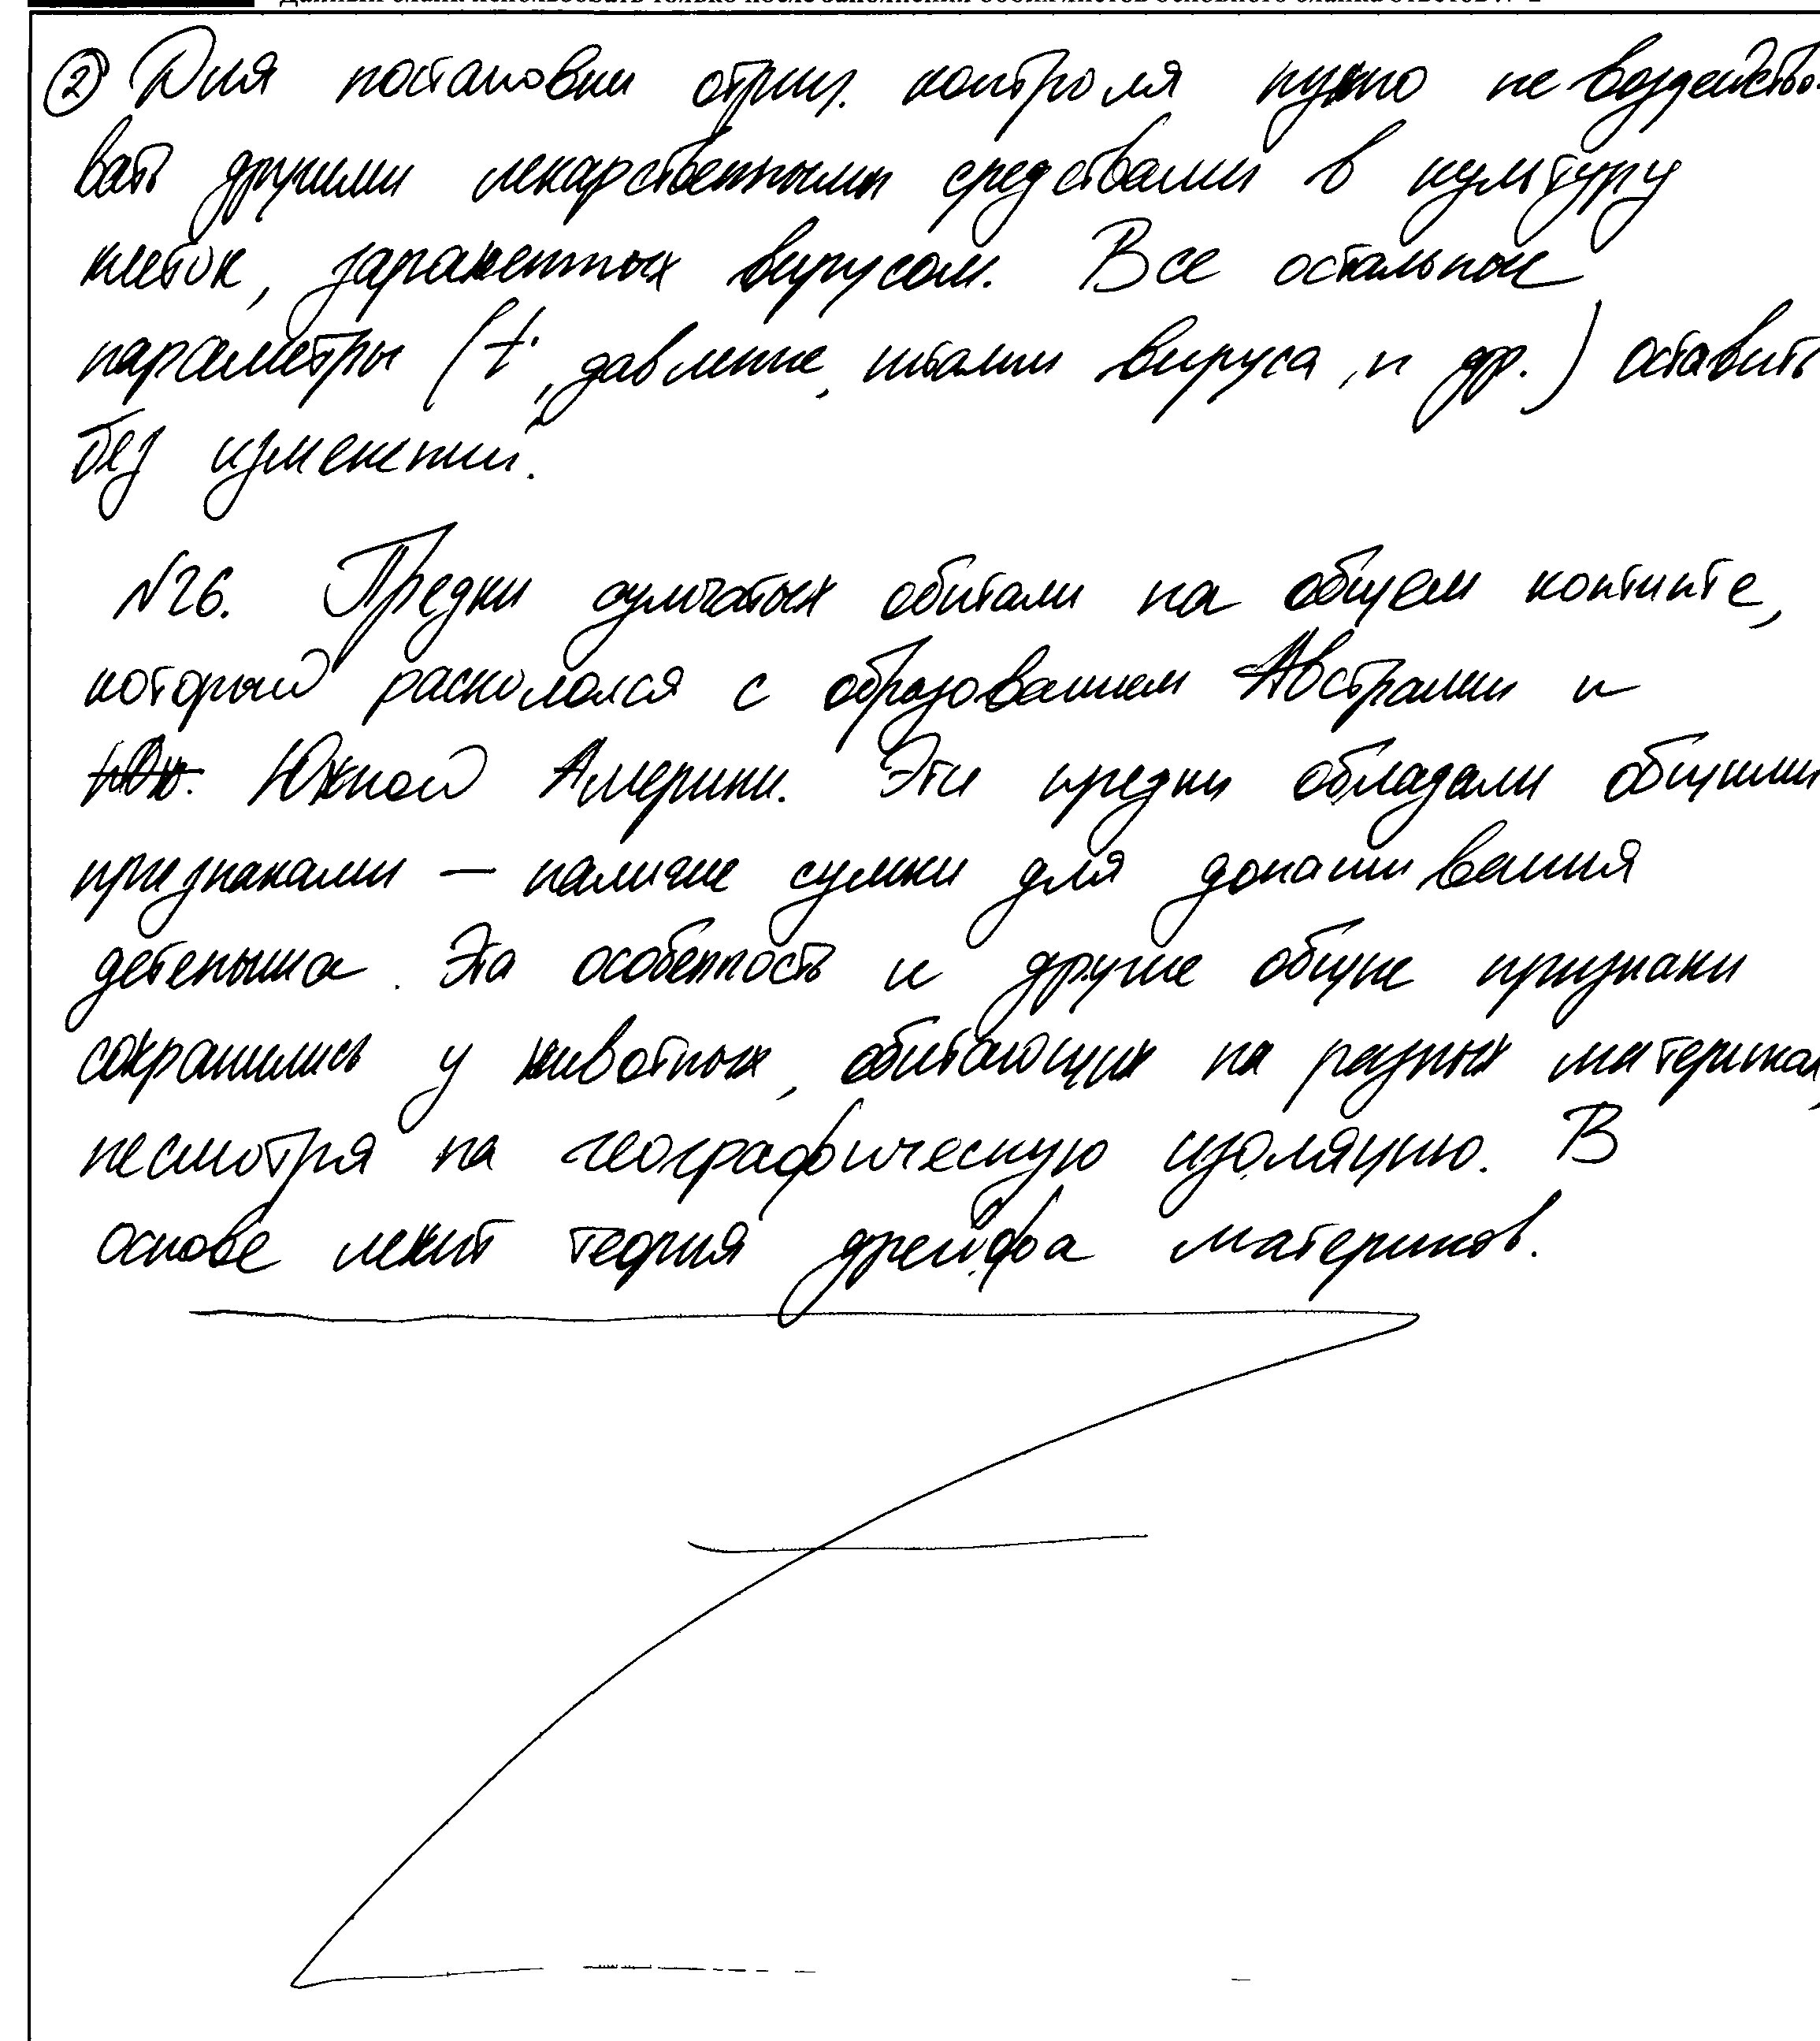 ② Для постановки отриц. контроля нужно не воздейство-
вать другими лекарственными средствами в культуру
клеток, зараженных вирусом. Все остальные
параметры (t°, давление, штамм вируса, и др.) оставить
без изменений.
№26. Предки сумчатых обитали на общем контингте,
который раскололся с образованием Австралии и
Южной Америки. Эти предки обладали общими
признаками — наличие сумки для донашивания
детеныша. Эта особенность и другие общие признаки
сохранились у животных, обитающих на разных материках,
несмотря на географическую изоляцию. В
основе лежит теория дрейфа материков.